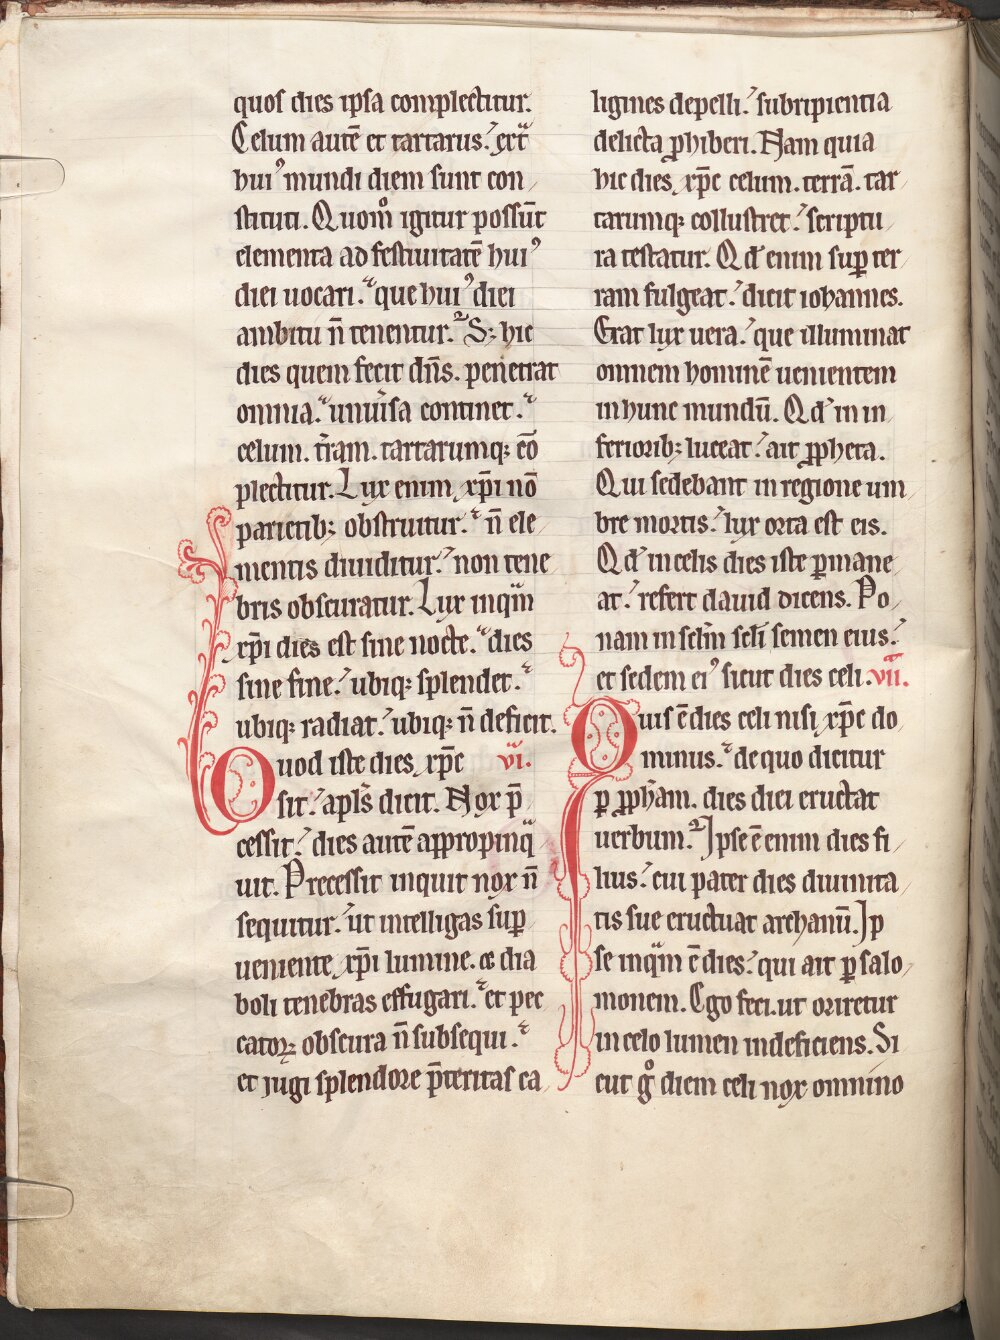 quos dies ipsa complectitur.
Celum autē et tartarus. ext͛
hui⁹ mundi diem sunt con
stituti. Quom̊ igitur possūt
elementa ad festiuitatē hui⁹
diei uocari. que hui⁹ diei
ambitu n̄ tenentur. S; hic
dies quem fecit dn̄s. penetrat
omnia. uniu͛sa continet.
celum. t͛ram. tartarumq; cō
plectitur. Lux enim xp̄i nō
parietib; obstruitur. n̄ ele
mentis diuiditur. non tene
bris obscuratur. Lux inqͣm
xp̄i dies est sine nocte. dies
sine fine. ubiq; splendet.
ubiq; radiat. ubiq; n̄ deficit.
Quod iste dies xp̄c vi.
sit. apl̄s dicit. Nox p̄
cessit. dies autē appropinqͣ
uit. Precessit inquit nox n̄
sequitur. ut intelligas sup̱
ueniente xp̄i lumine. & dia
boli tenebras effugari. et pec
catoꝝ obscura n̄ subsequi.
et iugi splendore p̄teritas ca
ligines depelli. subripientia
delicta ꝓhiberi. Nam quia
hic dies xp̄c celum. terrā. tar
tarumq; collustret. scriptu
ra testatur. Qđ enim suꝑ ter
ram fulgeat. dicit iohannes.
Erat lux uera. que illuminat
omnem hominē uenientem
in hunc mundū. Qđ in in
ferioribꝫ luceat. ait ꝓpheta.
Qui sedebant in regione um
bre mortis. lux orta est eis.
Qđ in celis dies iste ꝑmane
at. refert dauid dicens. Po
nam in sclm̄ scl̄i semen eius.
et sedem ei⁹ sicut dies celi. vii.
Quis ē dies celi nisi xp̄c do
minus. de quo dicitur
ꝑ ꝓph̄am. dies diei eructat
uerbum. Ipse ē enim dies fi
lius. cui pater dies diuinita
tis sue eructuat archanū. Ip
se inqͣm ē dies. qui ait ꝑ salo
monem. Ego feci. ut oriretur
in celo lumen indeficiens. Si
cut g̊ diem celi nox omnino